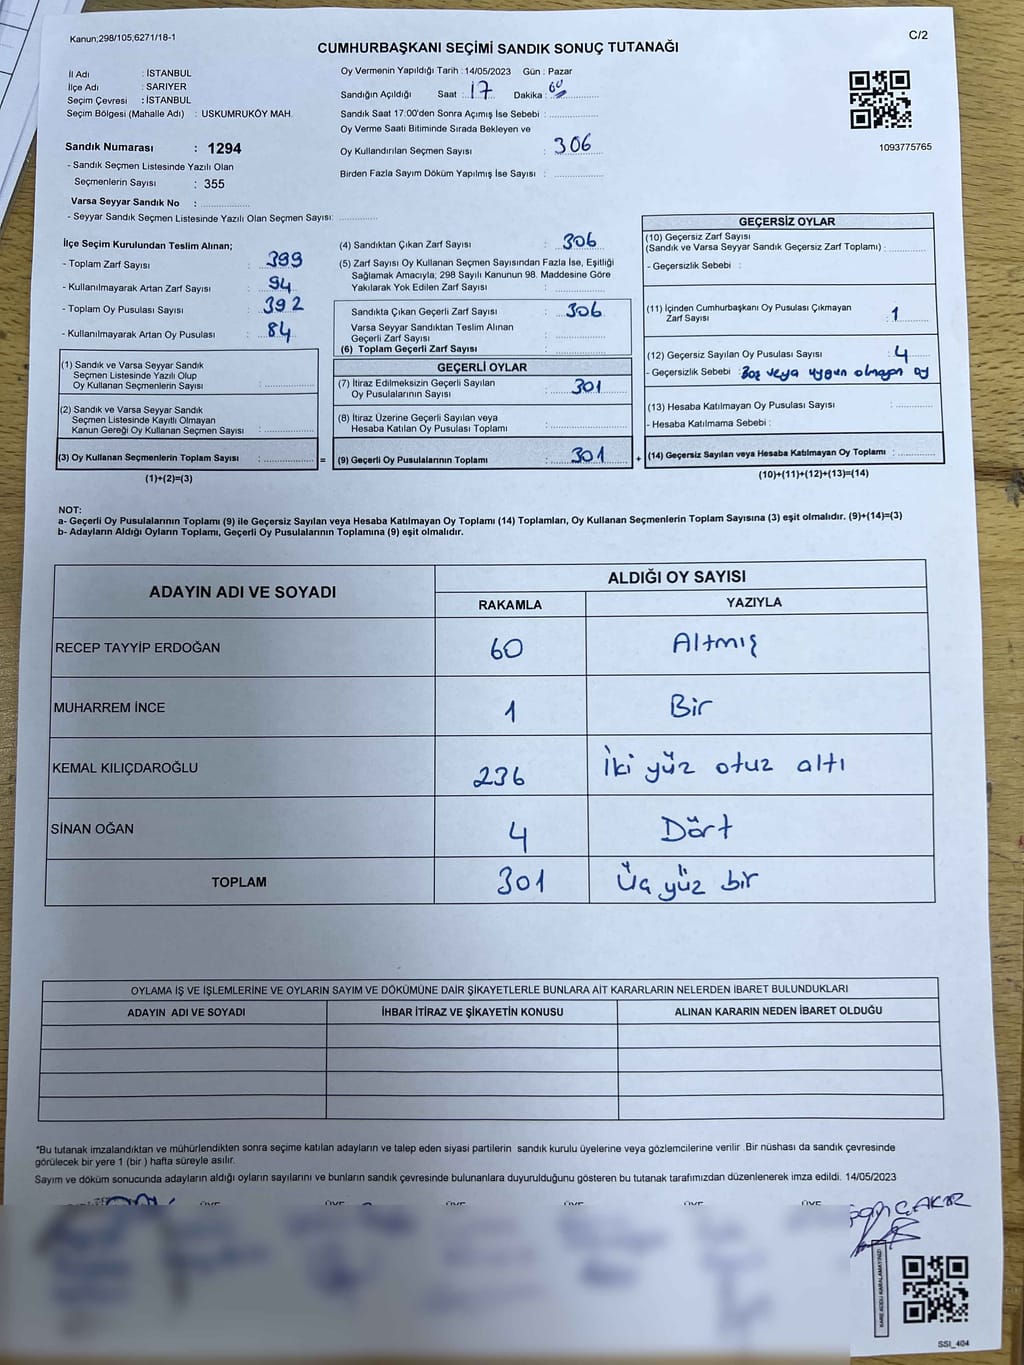 Kanun;298/105,6271/18-1
C/2
CUMHURBAŞKANI SEÇİMİ SANDIK SONUÇ TUTANAĞI
İl Adı : İSTANBUL
İlçe Adı : SARIYER
Seçim Çevresi : İSTANBUL
Seçim Bölgesi (Mahalle Adı) : USKUMRUKÖY MAH.
Oy Vermenin Yapıldığı Tarih : 14/05/2023 Gün : Pazar
Sandığın Açıldığı Saat : 17 Dakika :
Sandık Saat 17:00'den Sonra Açımış İse Sebebi :
Oy Verme Saati Bitiminde Sırada Bekleyen ve
Oy Kullandırılan Seçmen Sayısı : 306
Birden Fazla Sayım Döküm Yapılmış İse Sayısı :
1093775765
Sandık Numarası : 1294
- Sandık Seçmen Listesinde Yazılı Olan
Seçmenlerin Sayısı : 355
Varsa Seyyar Sandık No :
- Seyyar Sandık Seçmen Listesinde Yazılı Olan Seçmen Sayısı:
İlçe Seçim Kurulundan Teslim Alınan;
- Toplam Zarf Sayısı : 399
- Kullanılmayarak Artan Zarf Sayısı : 94
- Toplam Oy Pusulası Sayısı : 392
- Kullanılmayarak Artan Oy Pusulası : 84
(1) Sandık ve Varsa Seyyar Sandık
Seçmen Listesinde Yazılı Olup
Oy Kullanan Seçmenlerin Sayısı :
(2) Sandık ve Varsa Seyyar Sandık
Seçmen Listesinde Kayıtlı Olmayan
Kanun Gereği Oy Kullanan Seçmen Sayısı :
(3) Oy Kullanan Seçmenlerin Toplam Sayısı : =
(1)+(2)=(3)
(4) Sandıktan Çıkan Zarf Sayısı : 306
(5) Zarf Sayısı Oy Kullanan Seçmen Sayısından Fazla İse, Eşitliği
Sağlamak Amacıyla; 298 Sayılı Kanunun 98. Maddesine Göre
Yakılarak Yok Edilen Zarf Sayısı :
Sandıkta Çıkan Geçerli Zarf Sayısı : 306
Varsa Seyyar Sandıktan Teslim Alınan
Geçerli Zarf Sayısı :
(6) Toplam Geçerli Zarf Sayısı :
GEÇERLİ OYLAR
(7) İtiraz Edilmeksizin Geçerli Sayılan
Oy Pusulalarının Sayısı : 301
(8) İtiraz Üzerine Geçerli Sayılan veya
Hesaba Katılan Oy Pusulası Toplamı :
(9) Geçerli Oy Pusulalarının Toplamı : 301 +
GEÇERSİZ OYLAR
(10) Geçersiz Zarf Sayısı
(Sandık ve Varsa Seyyar Sandık Geçersiz Zarf Toplamı) :
- Geçersizlik Sebebi :
(11) İçinden Cumhurbaşkanı Oy Pusulası Çıkmayan
Zarf Sayısı : 1
(12) Geçersiz Sayılan Oy Pusulası Sayısı : 4
- Geçersizlik Sebebi : Boş veya uygun olmayan oy
(13) Hesaba Katılmayan Oy Pusulası Sayısı :
- Hesaba Katılmama Sebebi :
(14) Geçersiz Sayılan veya Hesaba Katılmayan Oy Toplamı :
(10)+(11)+(12)+(13)=(14)
NOT:
a- Geçerli Oy Pusulalarının Toplamı (9) ile Geçersiz Sayılan veya Hesaba Katılmayan Oy Toplamı (14) Toplamları, Oy Kullanan Seçmenlerin Toplam Sayısına (3) eşit olmalıdır. (9)+(14)=(3)
b- Adayların Aldığı Oyların Toplamı, Geçerli Oy Pusulalarının Toplamına (9) eşit olmalıdır.
ADAYIN ADI VE SOYADI
ALDIĞI OY SAYISI
RAKAMLA YAZIYLA
RECEP TAYYİP ERDOĞAN 60 Altmış
MUHARREM İNCE 1 Bir
KEMAL KILIÇDAROĞLU 236 İki yüz otuz altı
SİNAN OĞAN 4 Dört
TOPLAM 301 Üç yüz bir
OYLAMA İŞ VE İŞLEMLERİNE VE OYLARIN SAYIM VE DÖKÜMÜNE DAİR ŞİKAYETLERLE BUNLARA AİT KARARLARIN NELERDEN İBARET BULUNDUKLARI
ADAYIN ADI VE SOYADI İHBAR İTİRAZ VE ŞİKAYETİN KONUSU ALINAN KARARIN NEDEN İBARET OLDUĞU
*Bu tutanak imzalandıktan ve mühürlendikten sonra seçime katılan adayların ve talep eden siyasi partilerin sandık kurulu üyelerine veya gözlemcilerine verilir. Bir nüshası da sandık çevresinde
görülecek bir yere 1 (bir ) hafta süreyle asılır.
Sayım ve döküm sonucunda adayların aldığı oyların sayılarını ve bunların sandık çevresinde bulunanlara duyurulduğunu gösteren bu tutanak tarafımızdan düzenlenerek imza edildi. 14/05/2023
ÜYE ÜYE ÜYE ÜYE ÜYE ÜYE
ÇAKIR
KARE KODU KARALAMAYINIZ!
SSI_404